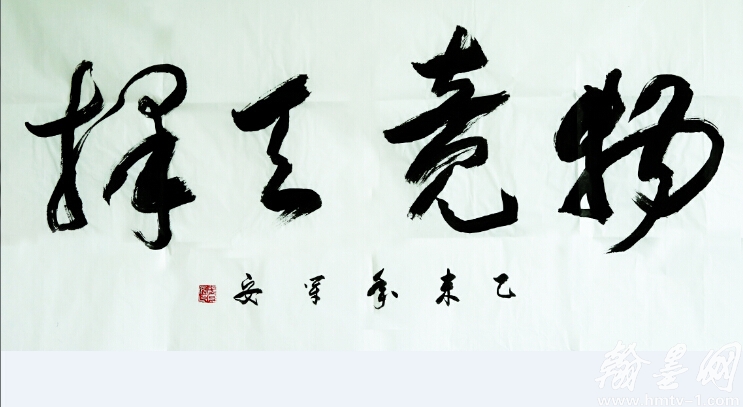 物竞天择
乙未年军安
翰墨网
www.hmtv-1.com